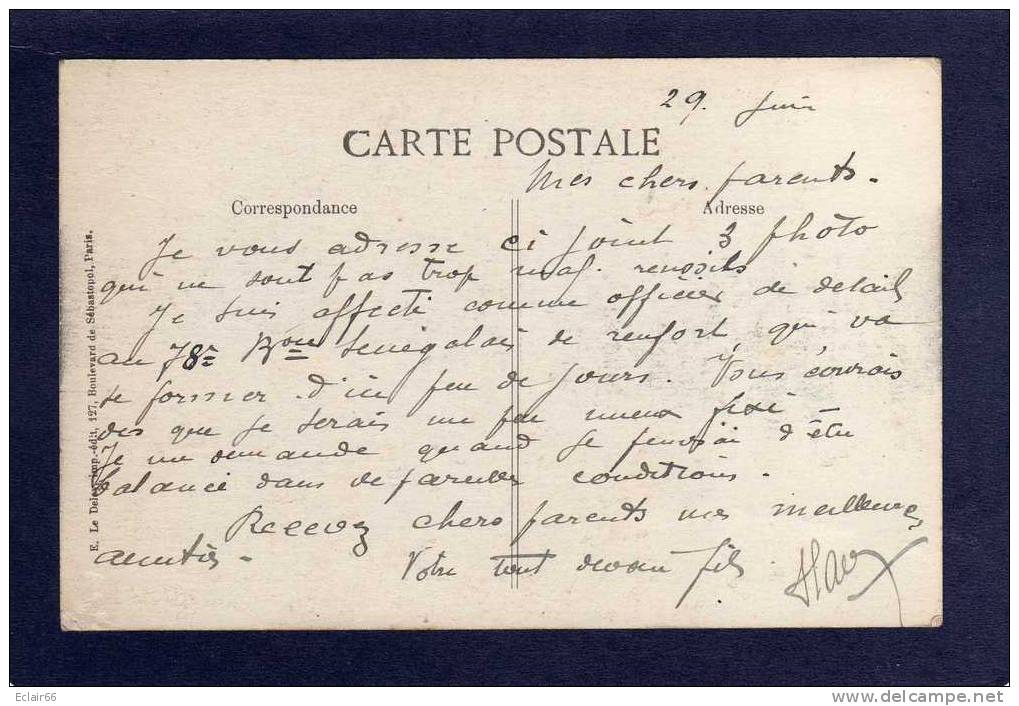 29. Juin
CARTE POSTALE
Mes chers parents.
Correspondance
Adresse
Je vous adresse ci joint 3 photo
qui ne sont pas trop mal.
Je suis affecté comme officier de detail
au 78e Bon Senegalais de renfort, qui va
se former d'ici peu de jours. Vous écrirais
des que je serais un peu mieux fixé
Je me demande quand je finirai d'être
balancé dans de pareilles conditions.
Recevez chers parents mes meilleures
amitiés.
Votre tout devoué fils
E. Le Deley, imp.-édit., 127, Boulevard de Sébastopol, Paris.
Eclair66
www.delcampe.net